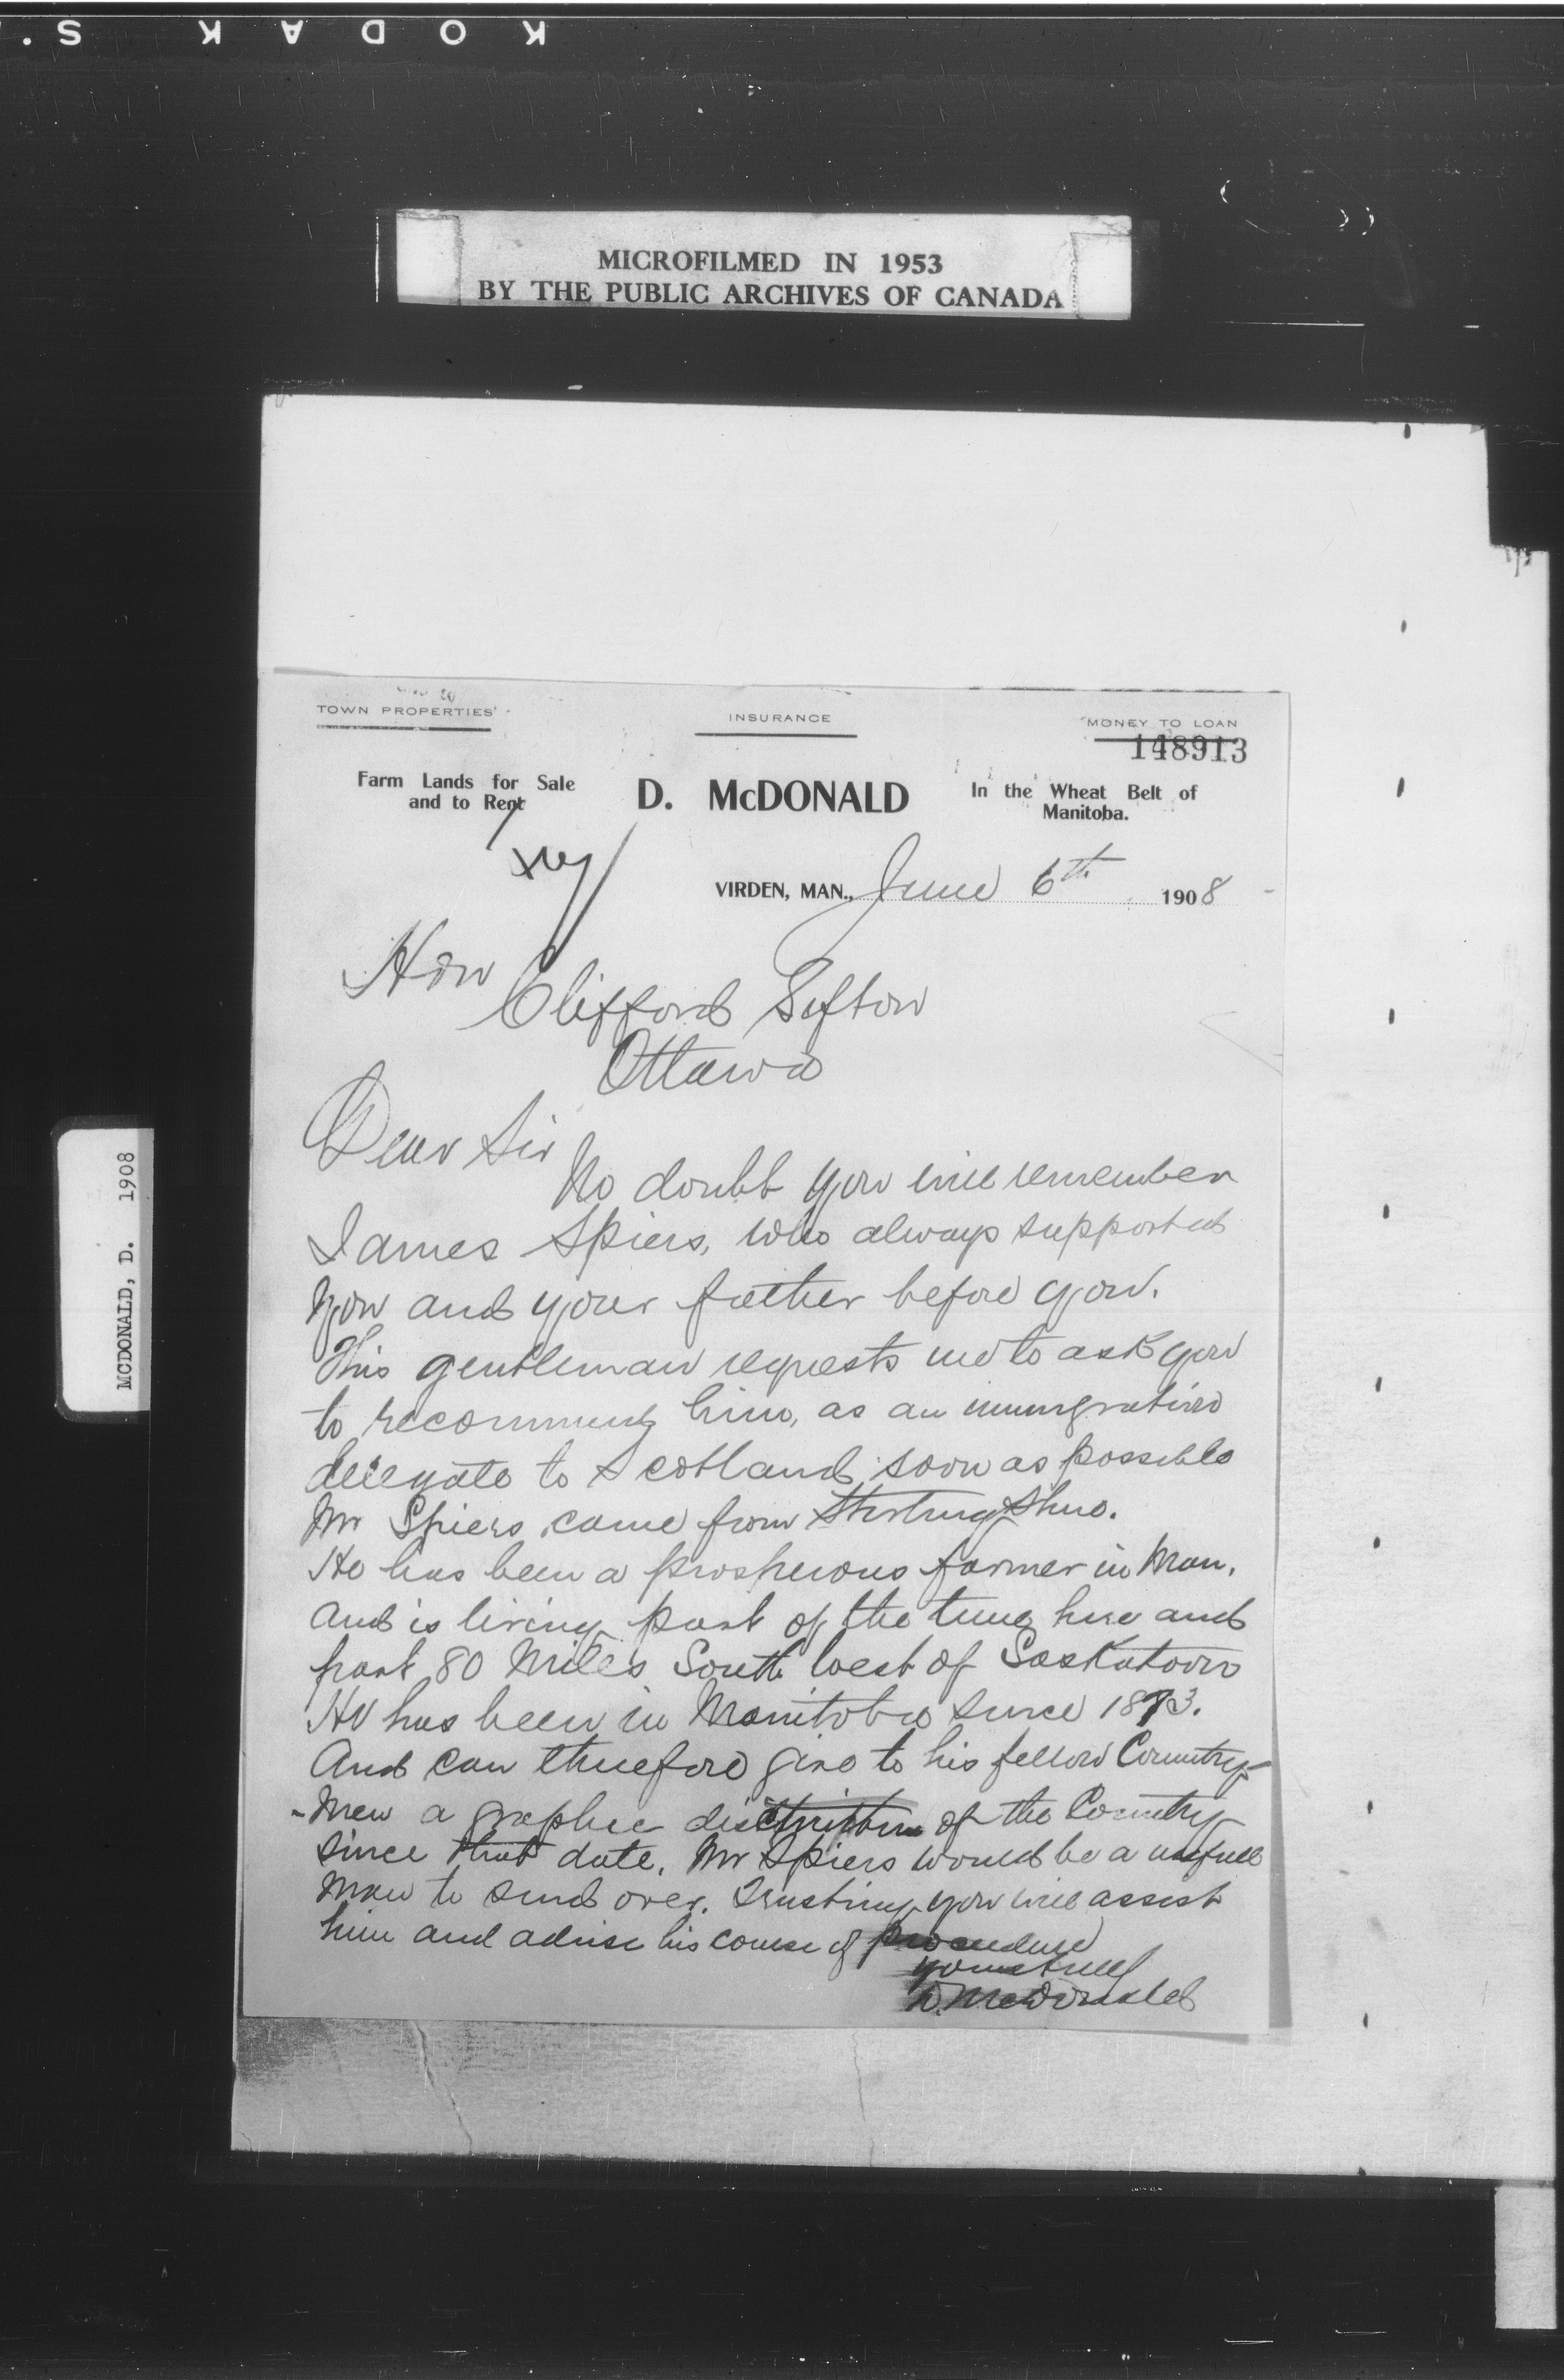 KODAK S.
MICROFILMED IN 1953
BY THE PUBLIC ARCHIVES OF CANADA
TOWN PROPERTIES
INSURANCE
MONEY TO LOAN
148913
Farm Lands for Sale
and to Rent
D. McDONALD
In the Wheat Belt of
Manitoba.
VIRDEN, MAN., June 6th 1908
Hon
Clifford Sifton
Ottawa
Dear Sir
No doubt you will remember
James Spiers, who always supported
you and your father before you.
This gentleman requests me to ask you
to recommend him, as an immigration
delegate to Scotland soon as possible
Mr Spiers came from Stirling Shire.
He has been a prosperous farmer in Man.
And is living part of the time here and
part 80 Miles South West of Saskatoon
He has been in Manitoba since 1873.
And can therefore give to his fellow Country-
-Men a graphic discription of the Country
since that date. Mr Spiers would be a usefull
Man to send over. Trusting you will assist
him and advise his course of procedure
yours truly
D. McDonald
MCDONALD, D. 1908